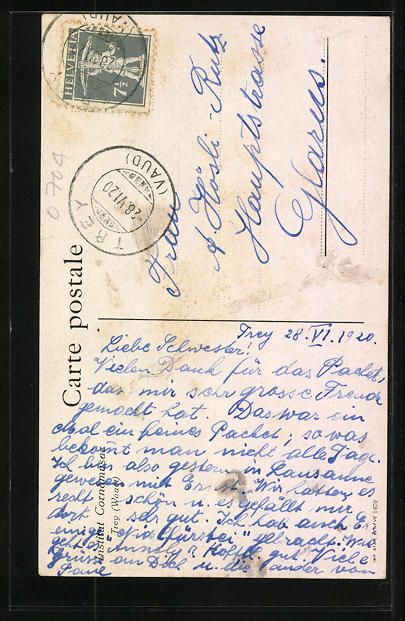 HELVETIA
7½
(VAUD)
TREY
(VAUD)
28.VI.20
0704
Carte postale
Frau
A. Hösli-Rutz
Hauptstrasse
Glarus.
Institut Cornamusaz
Trey (Vaud)
Trey 28. VI. 1920.
Liebe Schwester!
Vielen Dank für das Packet,
das mir sehr grosse Freude
gemacht hat. Das war ein
mal ein feines Packet; so was
bekommt man nicht alle Tage.
Ich bin also gestern in Lausanne
gewesen mit Ernst. Wir hatten es
recht schön u. es gefällt mir
dort sehr gut. Ich hab auch E.
einige gebracht. Wie
geht's Hofftl. gut. Viele
Grüsse an Dich u. von
Paul